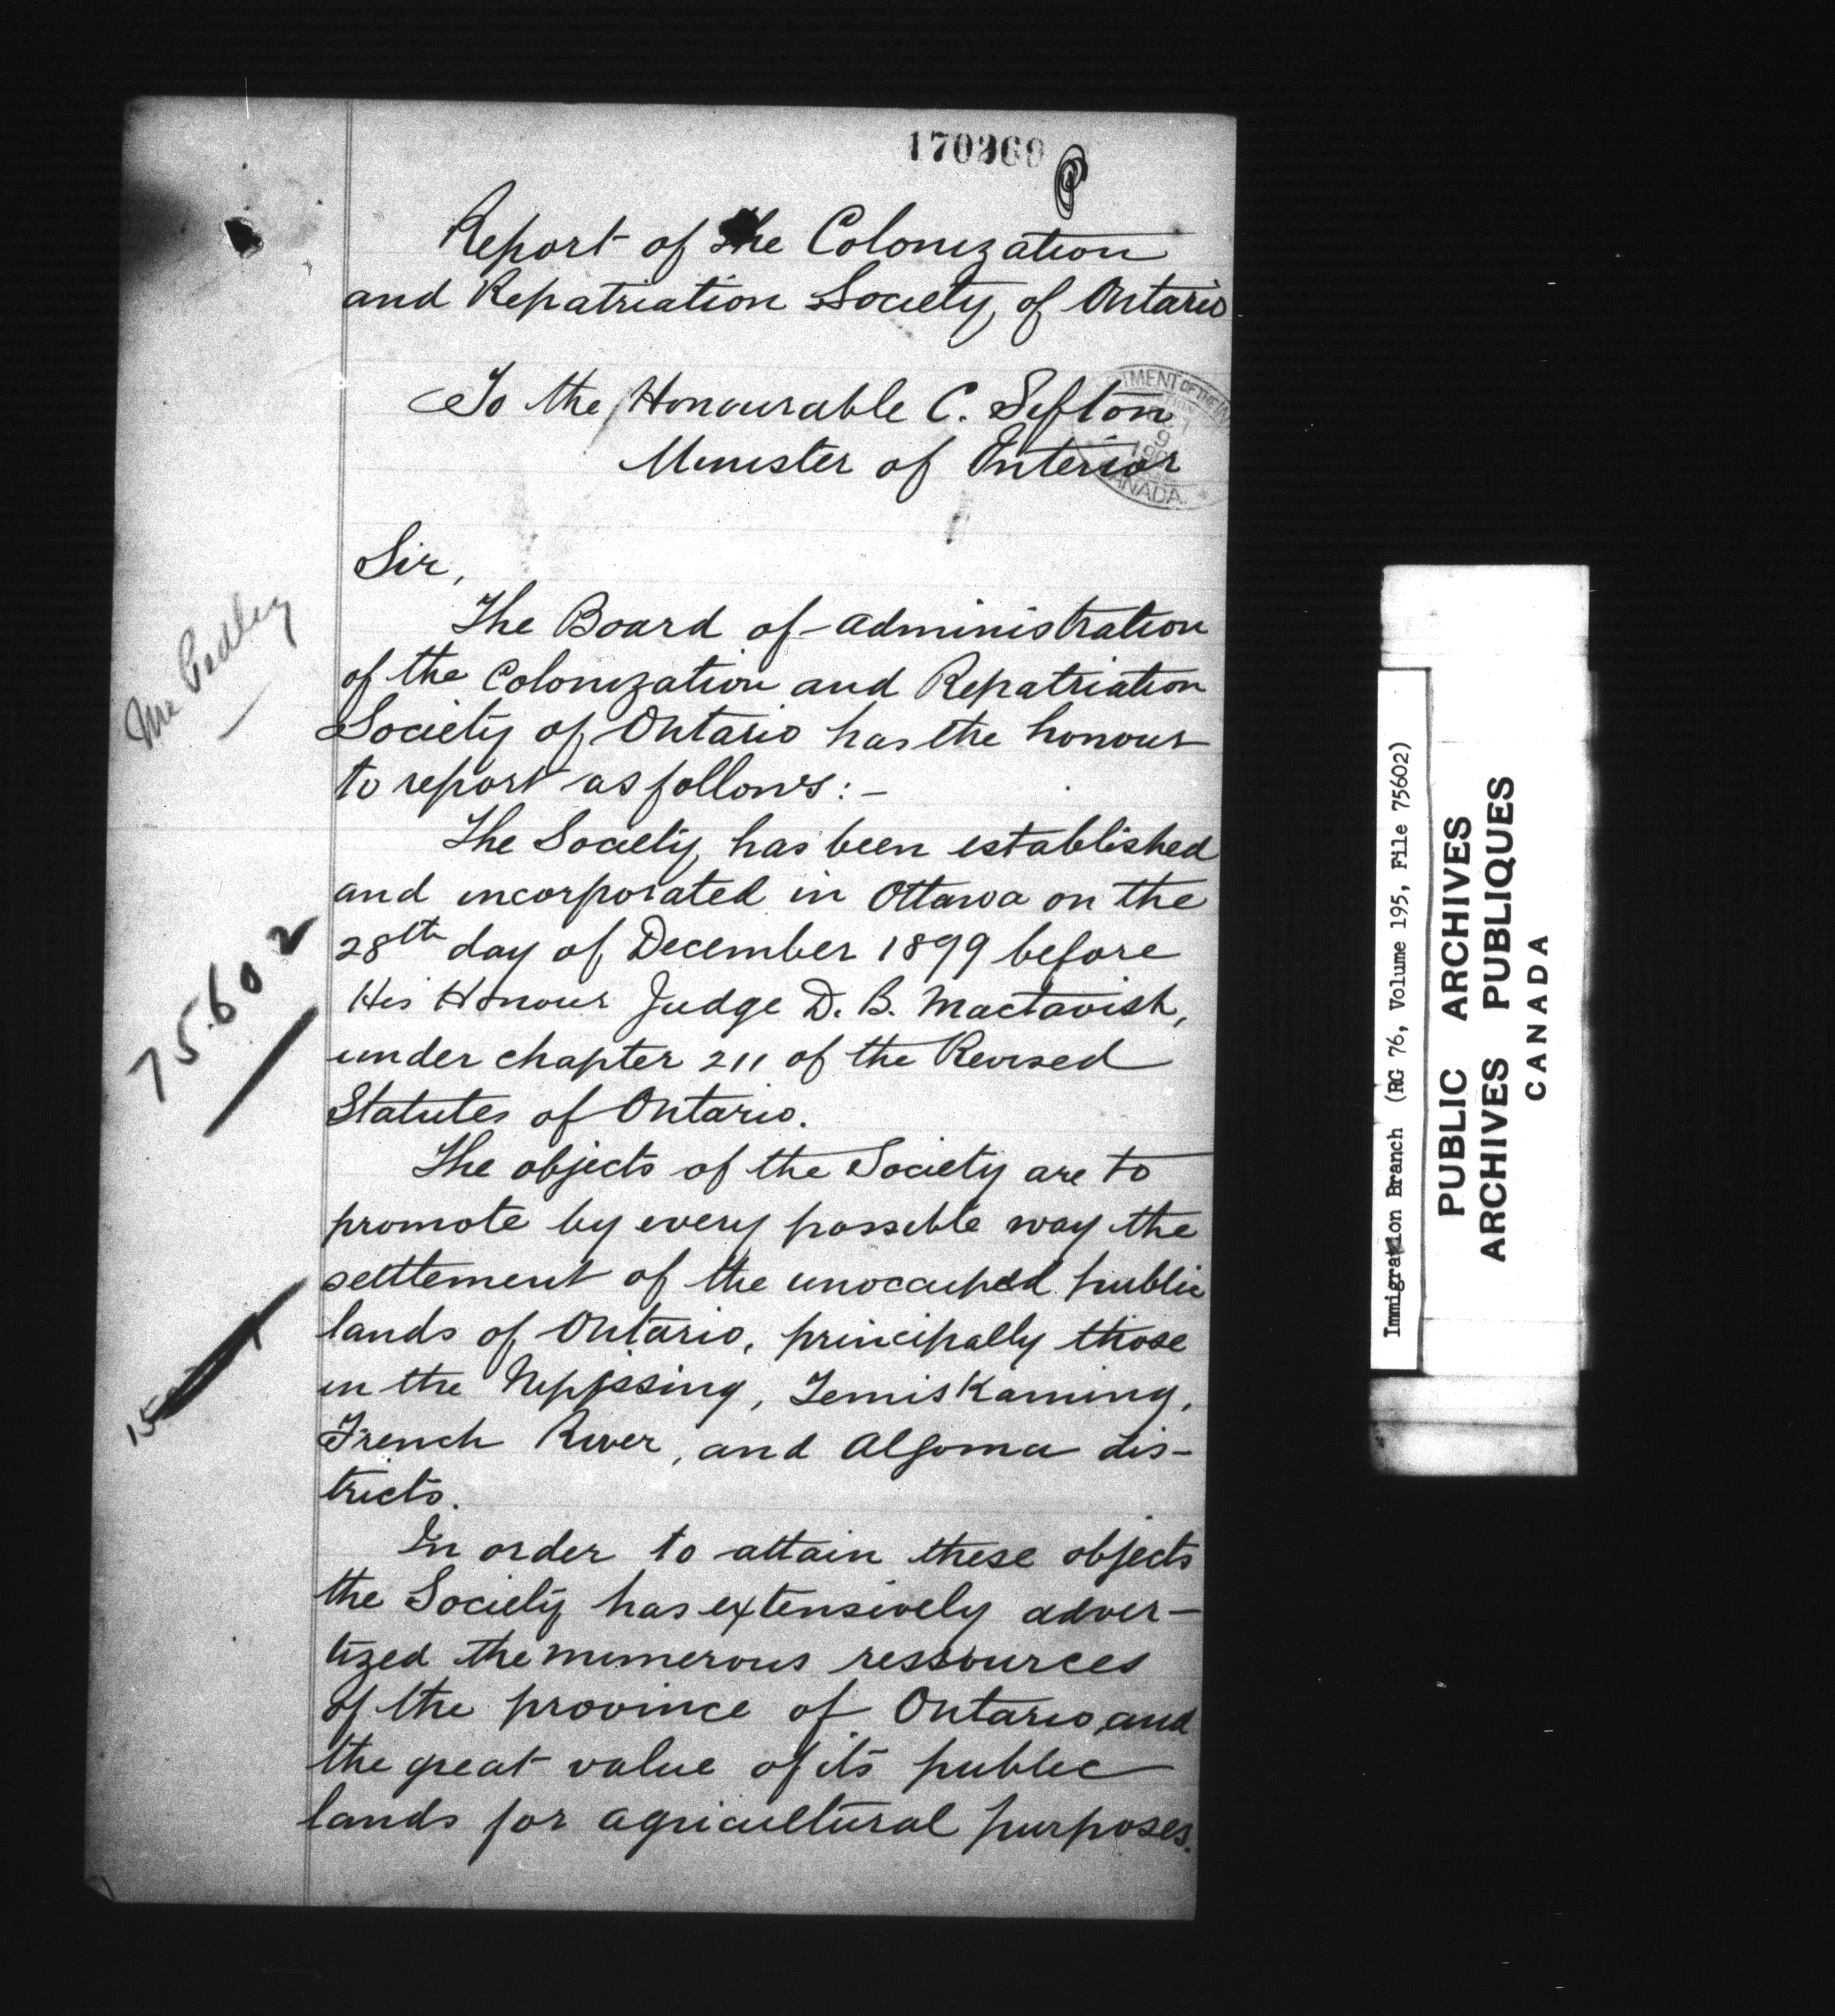 170369
Report of the Colonization
and Repatriation Society of Ontario
To the Honourable C. Sifton
Minister of Interior
TMENT OF THE IN
9
CANADA
Sir,
The Board of administration
of the Colonization and Repatriation
Society of Ontario has the honour
to report as follows:-
The Society has been established
and incorporated in Ottawa on the
28th day of December 1899 before
His Honour Judge D. B. Mactavish,
under chapter 211 of the Revised
Statutes of Ontario.
The objects of the Society are to
promote by every possible way the
settlement of the unoccupied public
lands of Ontario, principally those
in the Nipissing, Temiskaming,
French River, and Algoma dis-
tricts.
In order to attain these objects
the Society has extensively adver-
tized the numerous ressources
of the province of Ontario and
the great value of its public
lands for agricultural purposes.
Mr Pedley
75602
Immigration Branch (RG 76, Volume 195, File 75602)
PUBLIC ARCHIVES
ARCHIVES PUBLIQUES
CANADA